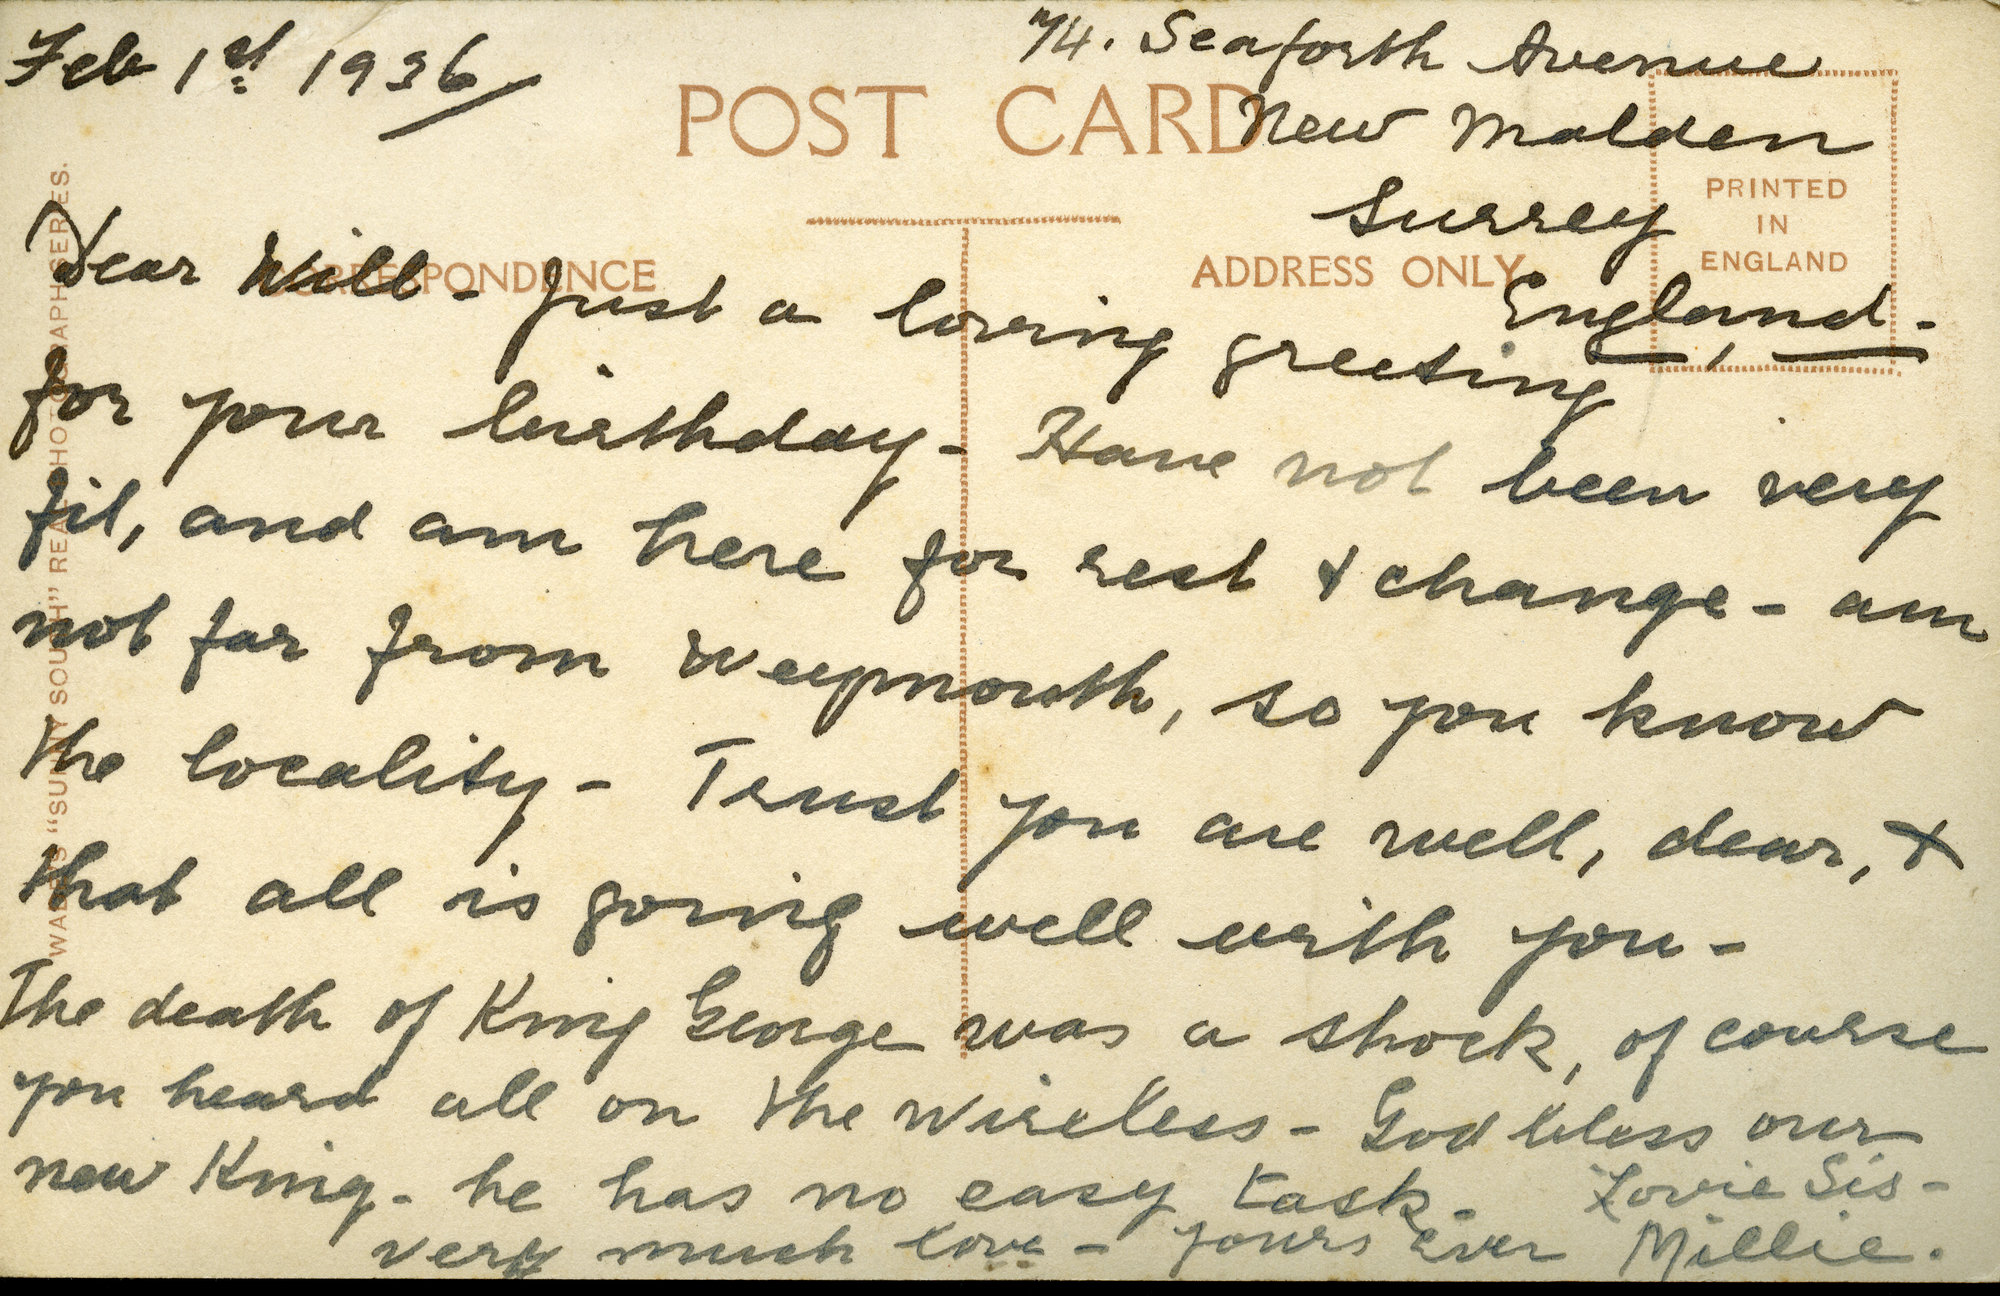 Feb 1st 1936
74. Seaforth Avenue
New Malden
Surrey
England.
POST CARD
CORRESPONDENCE
ADDRESS ONLY
PRINTED
IN
ENGLAND
WADE'S "SUNNY SOUTH" REAL PHOTOGRAPH SERIES.
Dear Will - Just a loving greeting
for your birthday - Have not been very
fit, and am here for rest & change - am
not far from Weymouth, so you know
the locality - Trust you are well, dear, &
that all is going well with you -
The death of King George was a shock, of course
you heard all on the wireless - God bless our
new King - he has no easy task.
very much love - yours ever
Lovie Sis -
Millie.